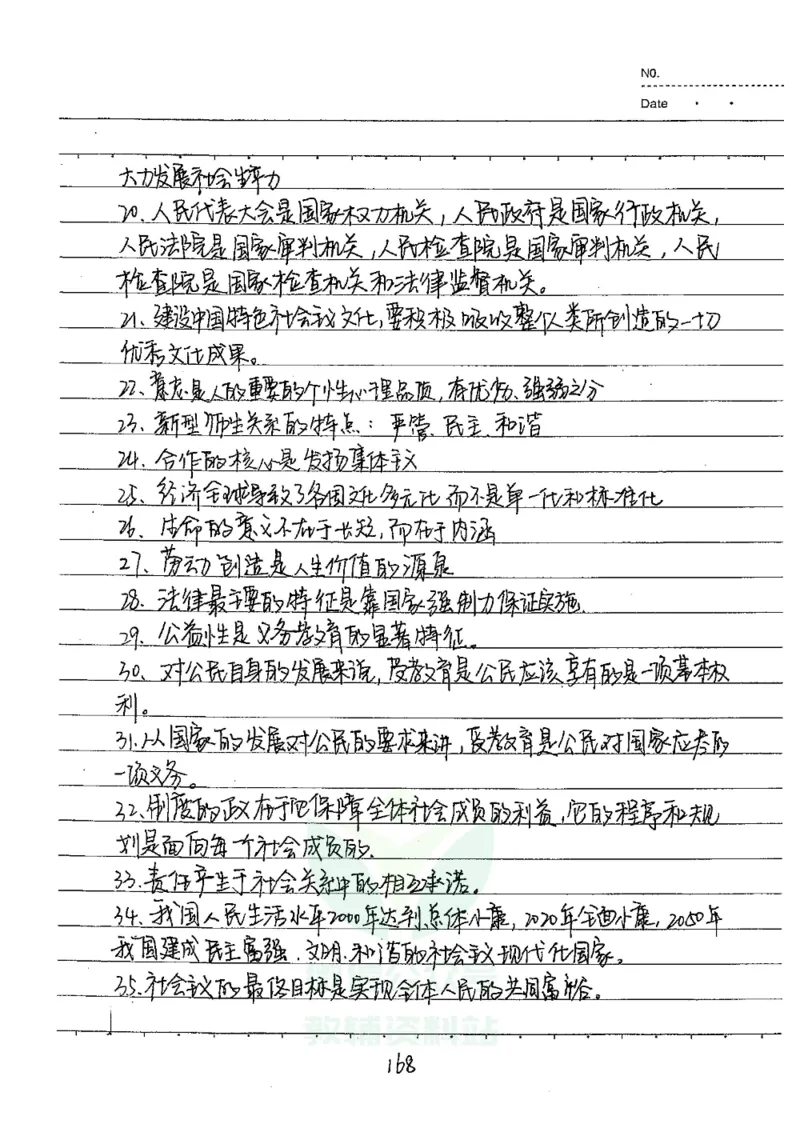 NO.
Date
大力发展社会生产力
20、人民代表大会是国家权力机关，人民政府是国家行政机关，
人民法院是国家审判机关，人民检查院是国家审判机关，人民
检查院是国家检查机关和法律监督机关。
21、建设中国特色社会主义文化，要积极吸收整个人类所创造的一切
优秀文化成果。
22、意志是人的重要的个性心理品质，有优劣、强弱之分
23、新型师生关系的特点：严管、民主、和谐
24、合作的核心是发扬集体主义
25、经济全球导致了各国文化多元化而不是单一化和标准化
26、生命的意义不在于长短，而在于内涵
27、劳动创造是人生价值的源泉
28、法律最主要的特征是靠国家强制力保证实施.
29、公益性是义务教育的显著特征。
30、对公民自身的发展来说，受教育是公民应该享有的是一项基本权
利。
31、从国家的发展对公民的要求来讲，受教育是公民对国家应尽的
一项义务。
32、制度的政在于它保障全体社会成员的利益，它的程序和规
划是面向每个社会成员的、
33、责任产生于社会关系中的相互承诺。
34、我国人民生活水平2000年达到总体小康，2020年全面小康，2050年
我国建成民主富强、文明、和谐的社会主义现代化国家。
35、社会主义的最终目标是实现全体人民的共同富裕。
教辅资料站
168